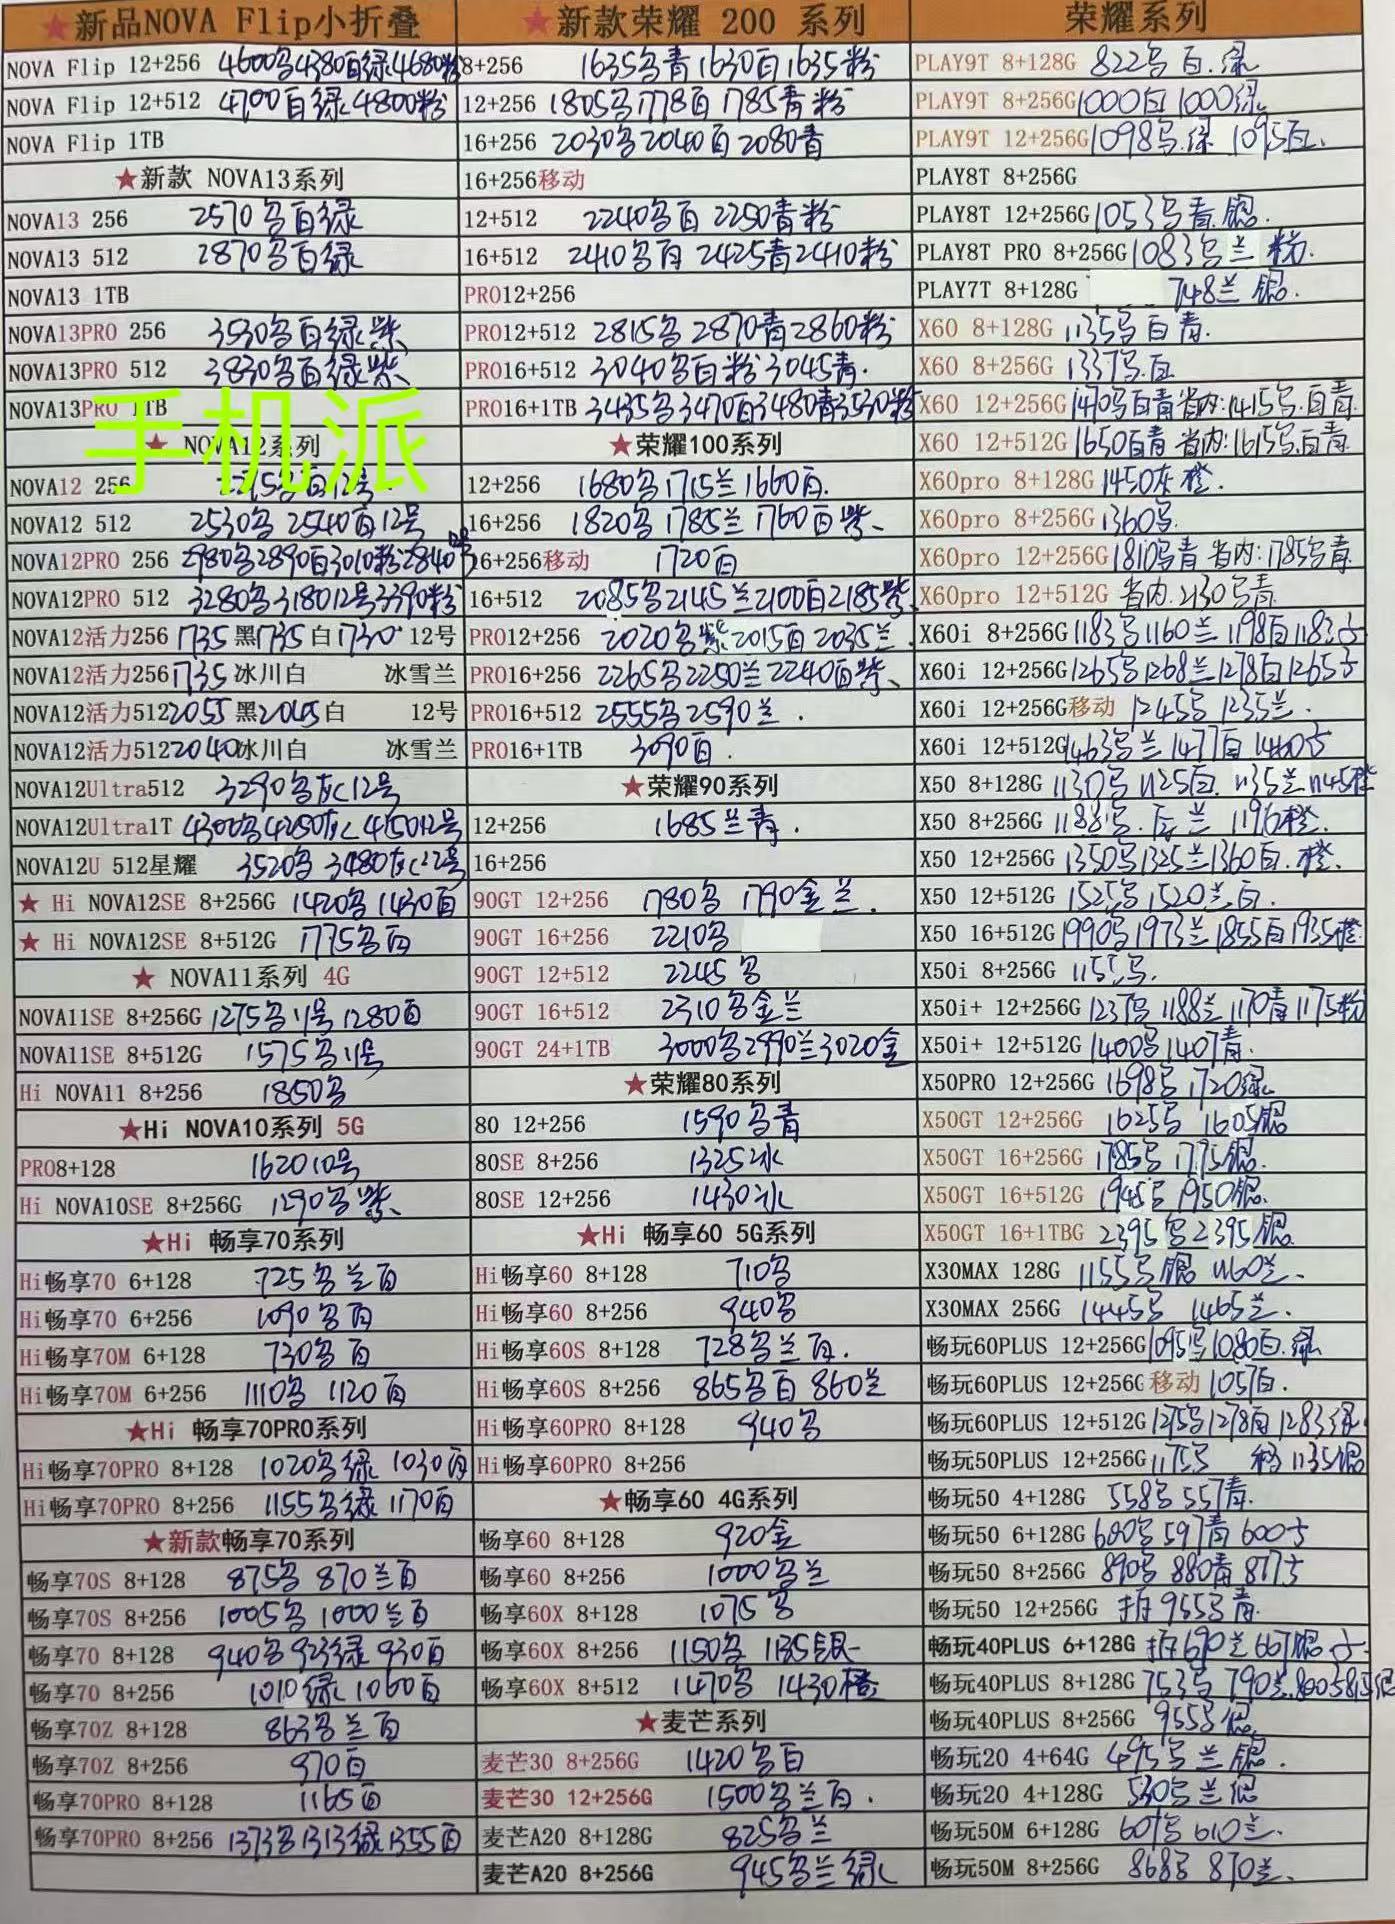 ★新品NOVA Flip小折叠
NOVA Flip 12+256 4600鸟4380百绿4680粉
NOVA Flip 12+512 4700百绿4800粉
NOVA Flip 1TB
★新款 NOVA13系列
NOVA13 256 2570鸟百绿
NOVA13 512 2870鸟百绿
NOVA13 1TB
NOVA13PRO 256 3530鸟百绿紫
NOVA13PRO 512 3830鸟百绿紫
NOVA13PRO 1TB
手机派
★ NOVA12系列
NOVA12 256
NOVA12 512 2530鸟 2540百12号
NOVA12PRO 256 2980鸟2890百3010粉2840
NOVA12PRO 512 3280鸟318012号3390粉
NOVA12活力256 1735黑1735白1730 12号
NOVA12活力256 1735冰川白 冰雪兰
NOVA12活力512 2055黑2045白 12号
NOVA12活力512 2040冰川白 冰雪兰
NOVA12Ultra512 3290鸟灰12号
NOVA12Ultra1T 4300鸟4250灰415012号
NOVA12U 512星耀 3520鸟 3480灰12号
★ Hi NOVA12SE 8+256G 1420鸟1430百
★ Hi NOVA12SE 8+512G 1775鸟百
★ NOVA11系列 4G
NOVA11SE 8+256G 1275鸟11号1280百
NOVA11SE 8+512G 1575鸟11号
Hi NOVA11 8+256 1850鸟
★Hi NOVA10系列 5G
PRO8+128 162010号
Hi NOVA10SE 8+256G 1290鸟紫
★Hi 畅享70系列
Hi畅享70 6+128 725鸟兰百
Hi畅享70 6+256 1090鸟百
Hi畅享70M 6+128 730鸟百
Hi畅享70M 6+256 1110鸟 1120百
★Hi 畅享70PRO系列
Hi畅享70PRO 8+128 1020鸟绿 1030百
Hi畅享70PRO 8+256 1155鸟绿 1170百
★新款畅享70系列
畅享70S 8+128 875鸟 870兰百
畅享70S 8+256 1005鸟 1000兰百
畅享70 8+128 940鸟923绿930百
畅享70 8+256 1010绿1060百
畅享70Z 8+128 863鸟兰百
畅享70Z 8+256 970百
畅享70PRO 8+128 1165百
畅享70PRO 8+256 1373鸟1313绿1355百
★新款荣耀 200 系列
8+256 1635鸟青1630百1635粉
12+256 1805鸟1778百1785青粉
16+256 2030鸟2040百2080青
16+256移动
12+512 2240鸟百 2250青粉
16+512 2410鸟百 2425青2410粉
PRO12+256
PRO12+512 2815鸟 2870青2860粉
PRO16+512 3040鸟百粉3045青.
PRO16+1TB 3435鸟3470百3480青3530粉
★荣耀100系列
12+256 1680鸟1715兰1660百.
16+256 1820鸟1785兰1760百紫
16+256移动 1720百
16+512 2085鸟2145兰2100百2185紫
PRO12+256 2020鸟紫2015百2035兰
PRO16+256 2265鸟2250兰2240百紫
PRO16+512 2555鸟2590兰.
PRO16+1TB 3090百.
★荣耀90系列
12+256 1685兰青.
16+256
90GT 12+256 1780鸟 1790金兰.
90GT 16+256 2210鸟
90GT 12+512 2245鸟
90GT 16+512 2310鸟金兰
90GT 24+1TB 3000鸟2990兰3020金
★荣耀80系列
80 12+256 1590鸟青
80SE 8+256 1325冰
80SE 12+256 1430冰
★Hi 畅享60 5G系列
Hi畅享60 8+128 710鸟
Hi畅享60 8+256 940鸟
Hi畅享60S 8+128 728鸟兰百.
Hi畅享60S 8+256 865鸟百860兰
Hi畅享60PRO 8+128 940鸟
Hi畅享60PRO 8+256
★畅享60 4G系列
畅享60 8+128 920金
畅享60 8+256 1000鸟兰
畅享60X 8+128 1075鸟
畅享60X 8+256 1150鸟 1135银
畅享60X 8+512 1470鸟 1430橙
★麦芒系列
麦芒30 8+256G 1420鸟百
麦芒30 12+256G 1500鸟兰百.
麦芒A20 8+128G 825鸟兰
麦芒A20 8+256G 945鸟兰绿
荣耀系列
PLAY9T 8+128G 822鸟百.绿
PLAY9T 8+256G 1000百1000绿
PLAY9T 12+256G 1098鸟.绿 1095百.
PLAY8T 8+256G
PLAY8T 12+256G 1053鸟青.银.
PLAY8T PRO 8+256G 1083鸟兰 粉.
PLAY7T 8+128G 748兰 银.
X60 8+128G 1135鸟百青.
X60 8+256G 1337鸟.百
X60 12+256G 1470鸟百青省内:1415鸟.百青.
X60 12+512G 1650百青 省内:1615鸟.百青.
X60pro 8+128G 1450灰橙.
X60pro 8+256G 1360鸟.
X60pro 12+256G 1810鸟青 省内:1785鸟青.
X60pro 12+512G 省内.2130鸟青
X60i 8+256G 1183鸟1160兰1198百1183
X60i 12+256G 1265鸟1268兰1278百1265
X60i 12+256G移动 1245鸟1235兰.
X60i 12+512G 1463鸟兰1477百1460
X50 8+128G 1130鸟1125百.1135兰1145橙
X50 8+256G 1188鸟. 兰 1196橙.
X50 12+256G 1350鸟1325兰1360百.橙.
X50 12+512G 1525鸟1520兰百.
X50 16+512G 1990鸟1973兰1855百1935橙
X50i 8+256G 1155鸟.
X50i+ 12+256G 1237鸟1188兰1170青1175粉
X50i+ 12+512G 1400鸟1407青.
X50PRO 12+256G 1698鸟1720绿
X50GT 12+256G 1625鸟 1605银
X50GT 16+256G 1785鸟 1775银.
X50GT 16+512G 1945鸟 1950银.
X50GT 16+1TBG 2395鸟2395银.
X30MAX 128G 1155鸟银 1160兰.
X30MAX 256G 1445鸟 1465兰.
畅玩60PLUS 12+256G 1095鸟1080百.绿
畅玩60PLUS 12+256G 移动 1057百.
畅玩60PLUS 12+512G 1275鸟1278百1283绿
畅玩50PLUS 12+256G 1175鸟 移1135银
畅玩50 4+128G 558鸟557青.
畅玩50 6+128G 600鸟597青600
畅玩50 8+256G 890鸟880青877
畅玩50 12+256G 拆955鸟青.
畅玩40PLUS 6+128G 拆690兰667银
畅玩40PLUS 8+128G 753鸟790兰
畅玩40PLUS 8+256G 955鸟银
畅玩20 4+64G 495鸟兰银.
畅玩20 4+128G 530鸟兰银
畅玩50M 6+128G 607鸟610兰.
畅玩50M 8+256G 868鸟870兰.